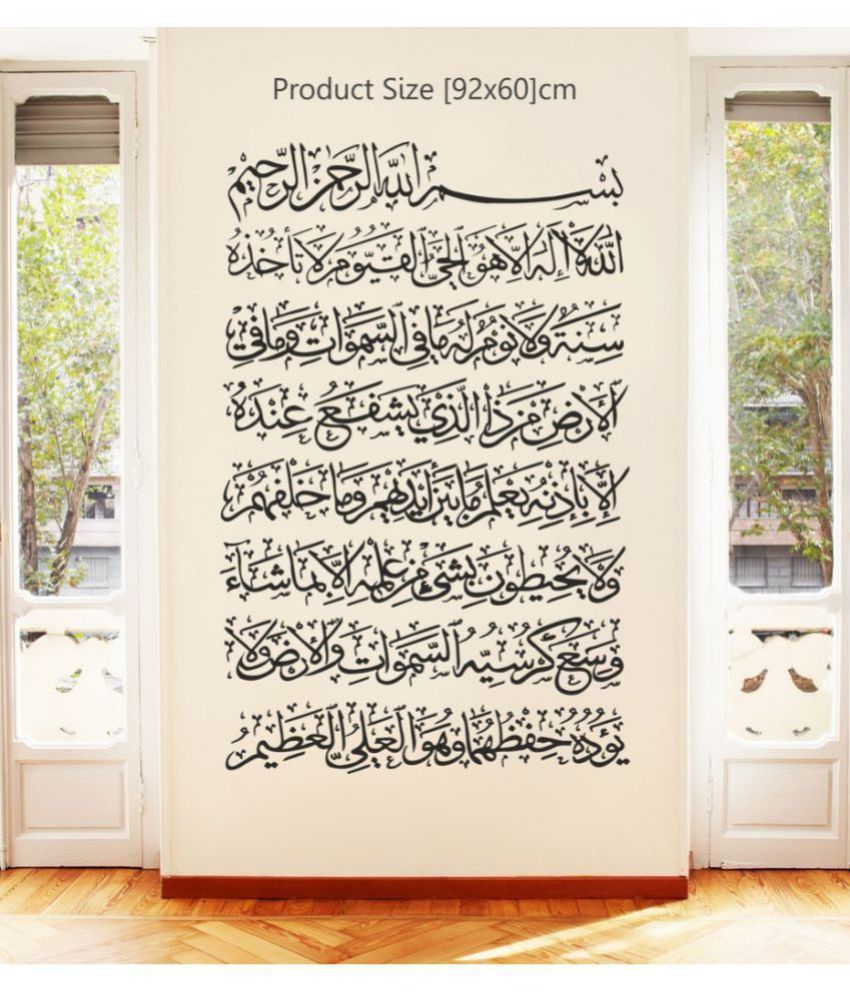 Product Size [92x60]cm
بسم الله الرحمن الرحيم
الله لا إله إلا هو الحي القيوم لا تأخذه
سنة ولا نوم له ما في السموات وما في
الأرض من ذا الذي يشفع عنده
إلا بإذنه يعلم ما بين أيديهم وما خلفهم
ولا يحيطون بشيء من علمه إلا بما شاء
وسع كرسيه السموات والأرض ولا
يؤده حفظهما وهو العلي العظيم